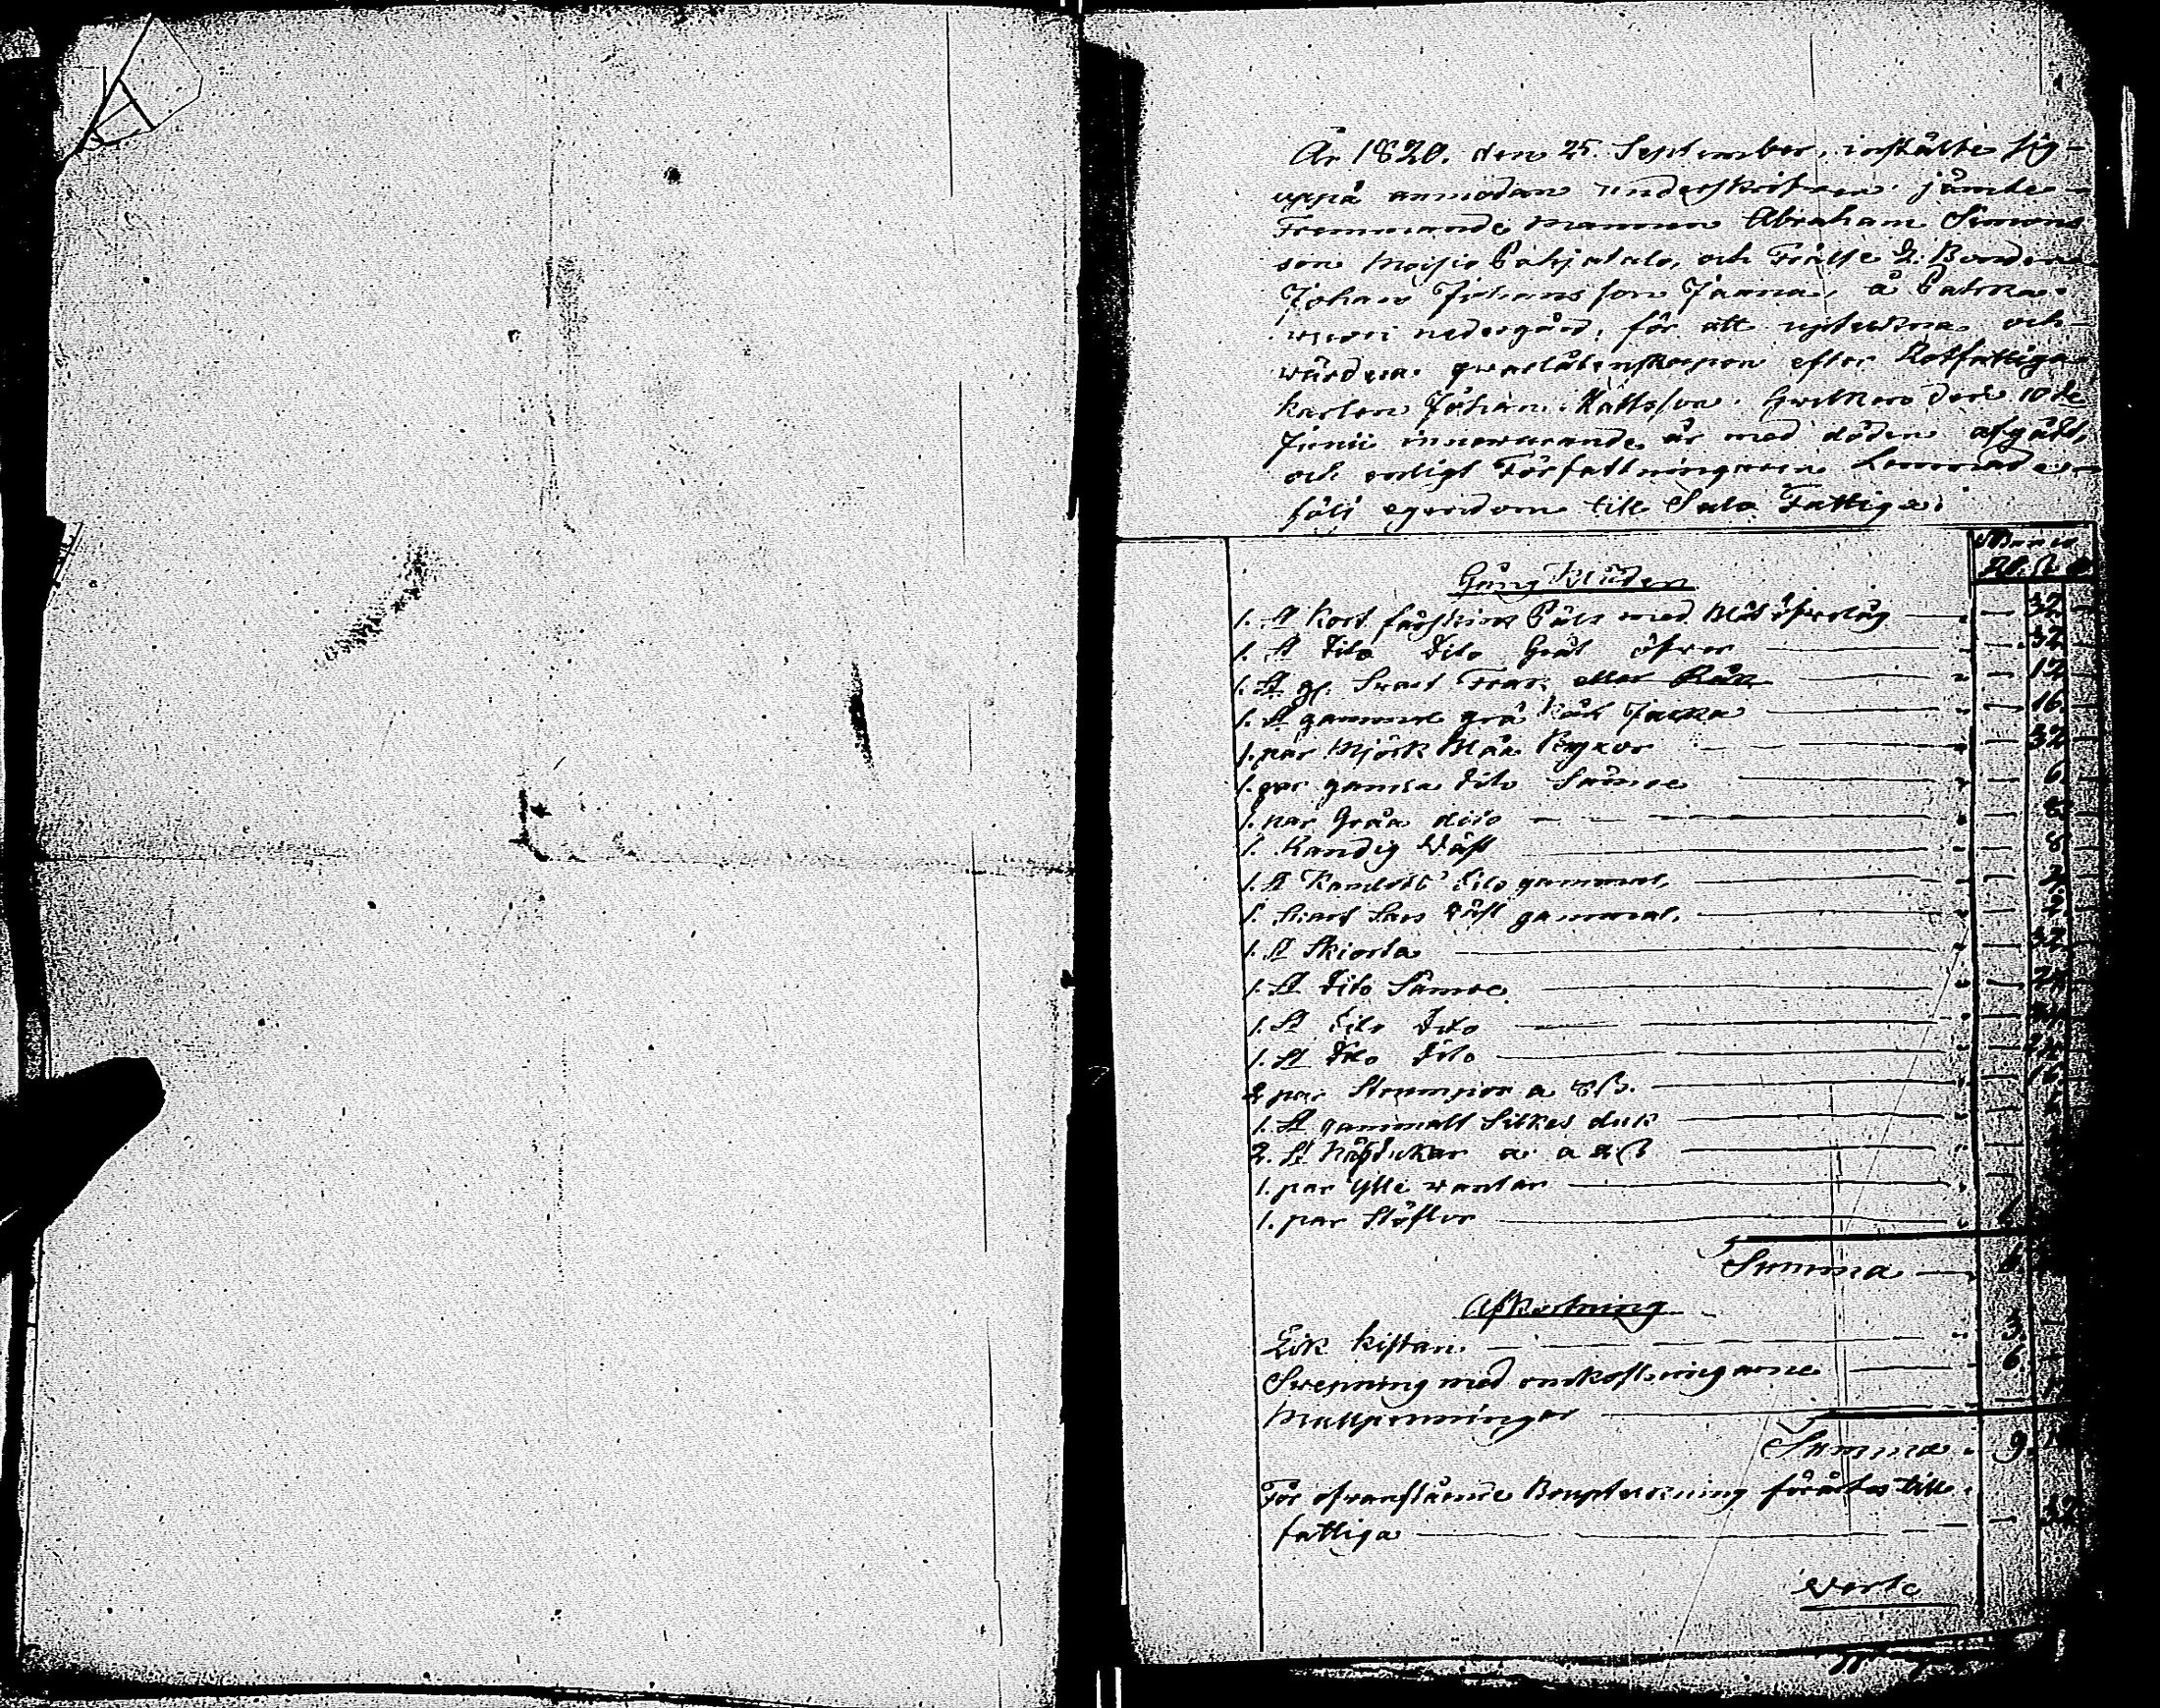 År 1820. den 25. September, instälte sig
uppå anmodan underskrifne jämte
Tremmande mannen Abraham Simons
son Moisio Pahjatalo, och Frälse L. Bonden
Johan Johansson Jaana, å Pahka-
wuori nedergård, för att uptekna och
wärdera qwarlåtenskapen efter Rotfattiga
karlen Johan Mattsson. Hwilken den 10de
Junii innewarande år med döden afgått,
och enligt Författningarne hemfaller
egendom till Salo Fattiga.
Banco
Rd. ß
Gång Kläder
1. St Kort fårskins Päls med Blåt öfwerlag — 32
1. St Dito Dito Gråt öfwer — 32
1. St gl. Swart Frak eller Råck — 12
1. St gammal grå Jacka — 16.
1. par Mjörk Blåa Byxor — 32
1. par gamla dito Sämre — 6.
1. par Gråa dito — 8
1. Randig Wäst — 8
1. St dito gammal, — 2.
1. Swart Wäst gammal. — 2.
1. St Skiorta — 32
1. St Dito Sämre — 24
1. St Dito Dito — 24
1. St Dito Dito — 24
2 par Strumpor a 8 ß. — 16.
1. St gammalt Silkes duk
2. St Näsdukar a 2 ß
1. par Ylle wantar
1. par Stöflor
Summa — 6.
Afkortning
Lik kistan — 3.
Swepning med omkostningarne — 6
Mullpenningar
Summa. 9.
För ofwanstående Bouptekning föräras till
fattiga — 32
Verte